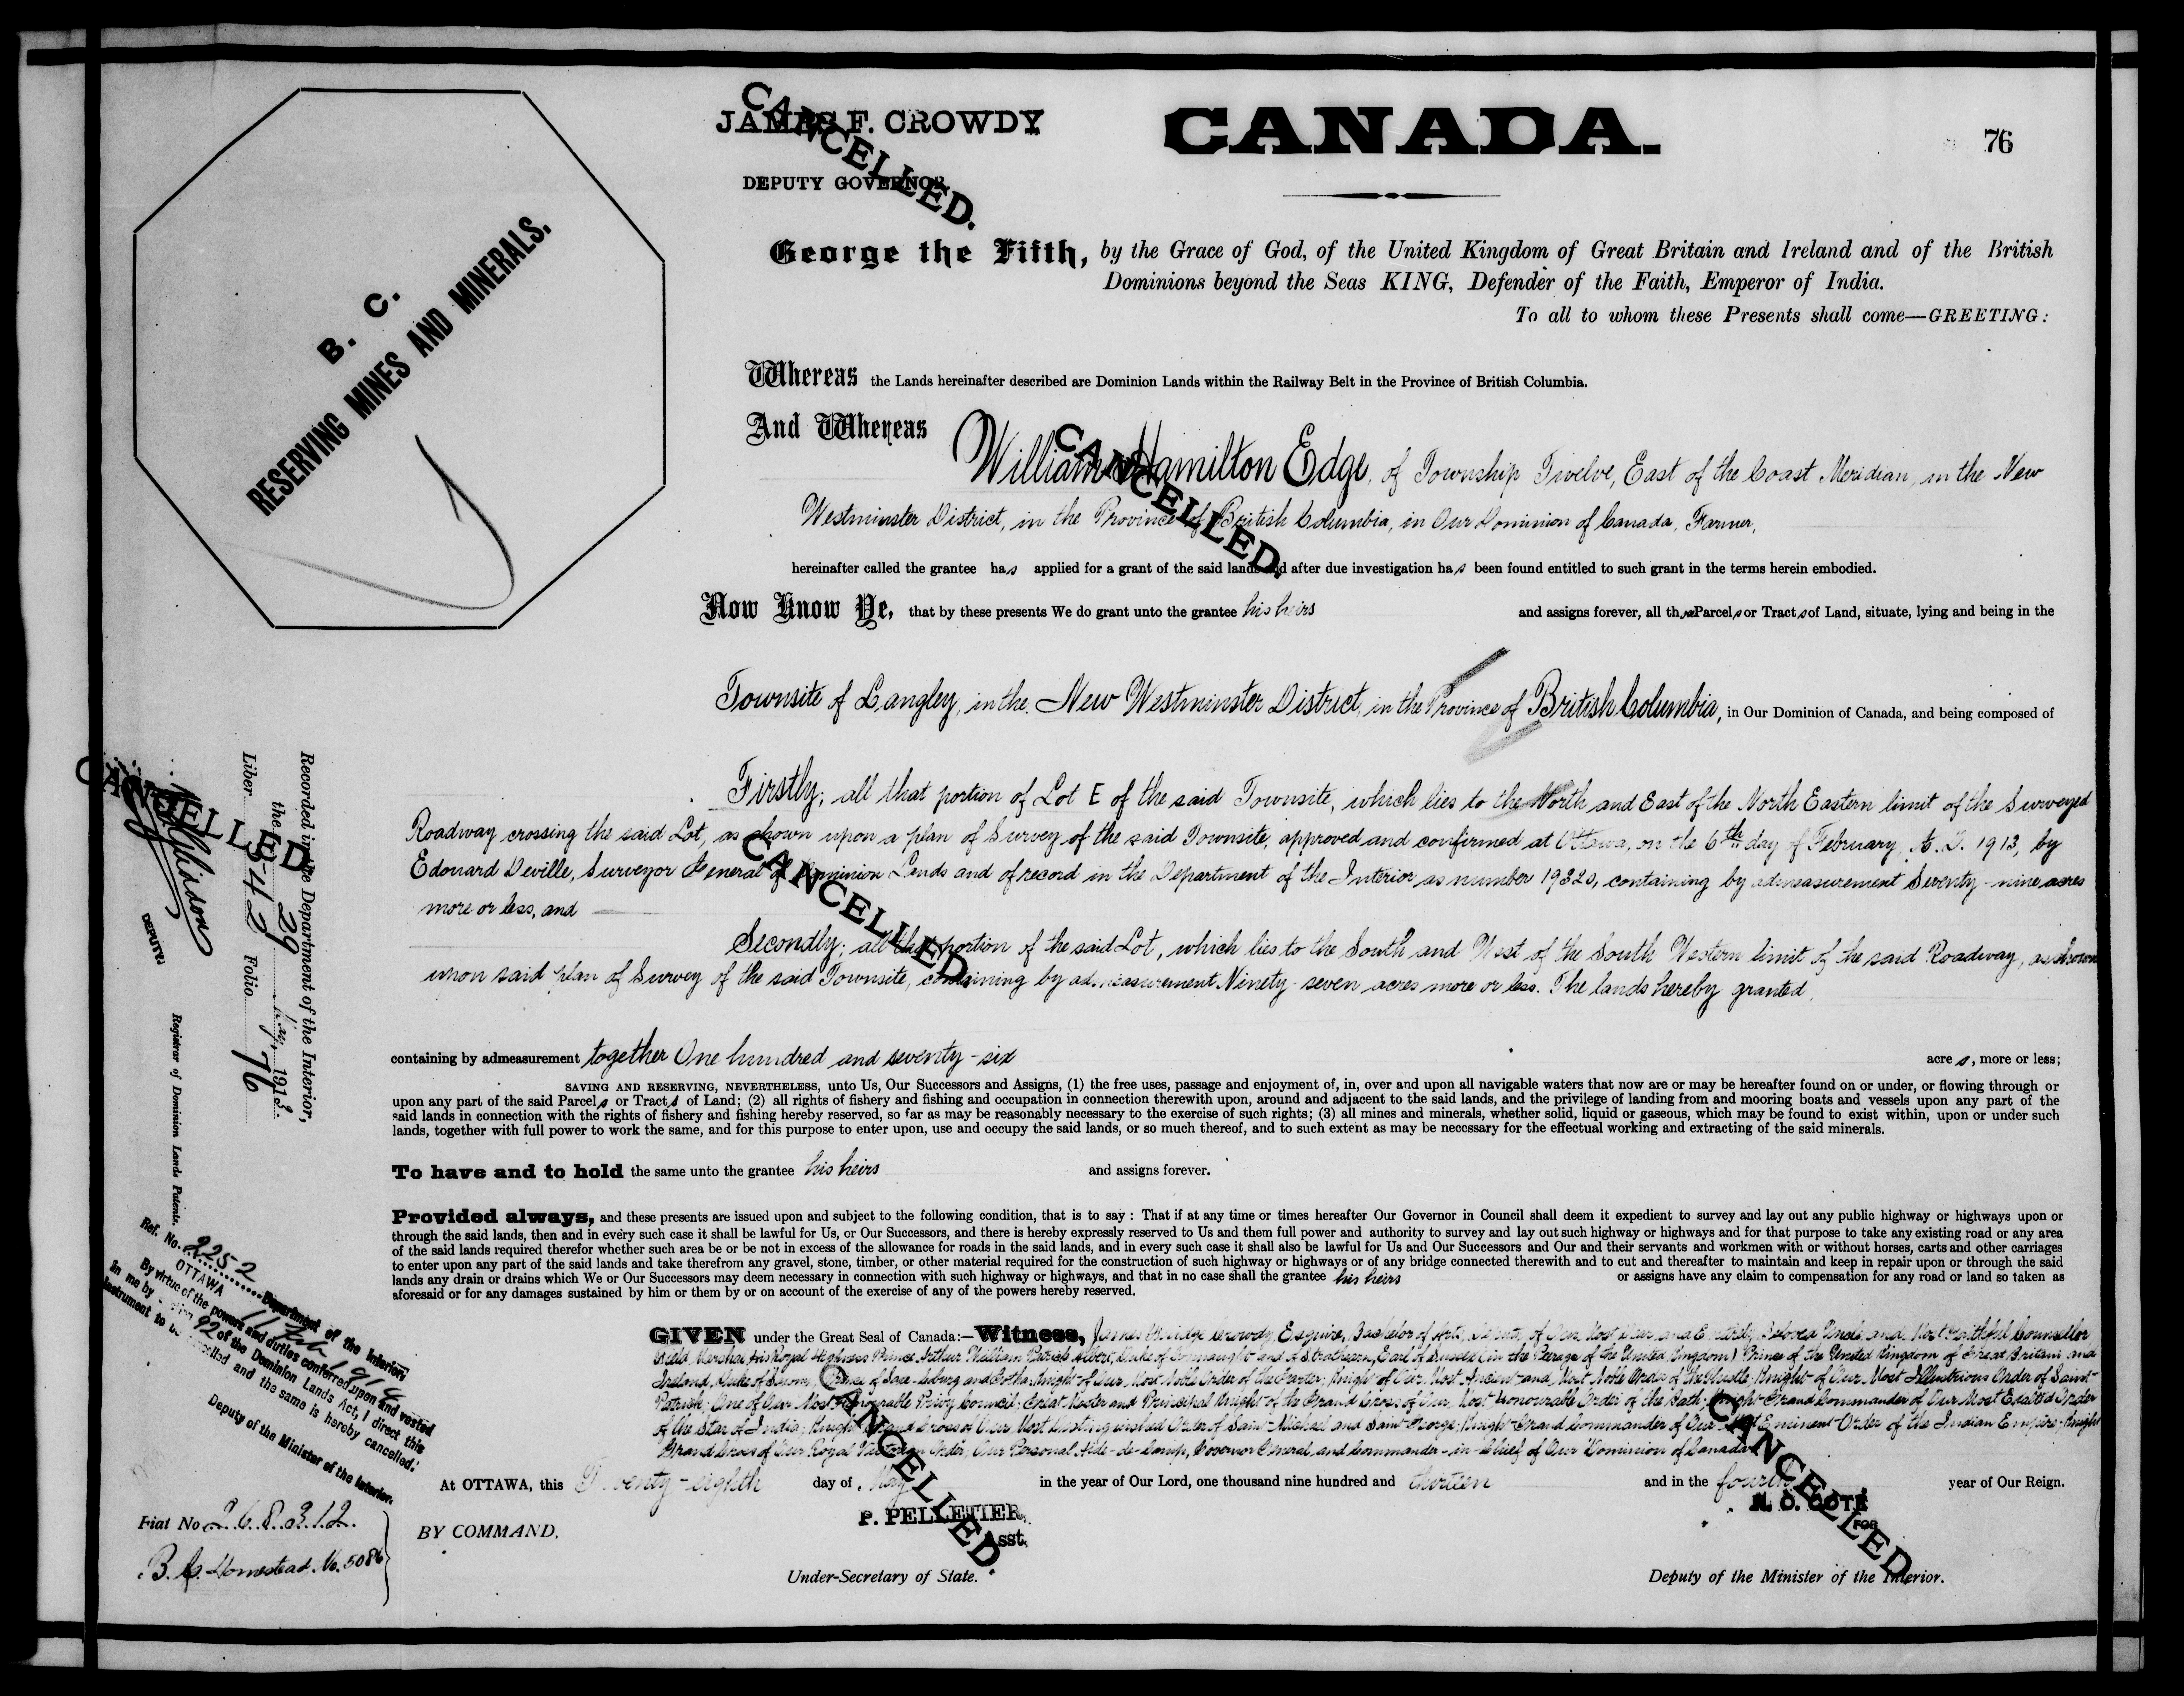 JAMES F. CROWDY
DEPUTY GOVERNOR
CANCELLED.
CANADA.
76
B. C.
RESERVING MINES AND MINERALS.
George the Fifth, by the Grace of God, of the United Kingdom of Great Britain and Ireland and of the British
Dominions beyond the Seas KING, Defender of the Faith, Emperor of India.
To all to whom these Presents shall come—GREETING:
Whereas the Lands hereinafter described are Dominion Lands within the Railway Belt in the Province of British Columbia.
And Whereas
William Hamilton Edge, of Township Twelve, East of the Coast Meridian, in the New
CANCELLED.
Westminster District, in the Province of British Columbia, in Our Dominion of Canada, Farmer,
hereinafter called the grantee has applied for a grant of the said lands and after due investigation has been found entitled to such grant in the terms herein embodied.
Now Know Ye, that by these presents We do grant unto the grantee his heirs and assigns forever, all those Parcels or Tracts of Land, situate, lying and being in the
Townsite of Langley, in the New Westminster District, in the Province of British Columbia, in Our Dominion of Canada, and being composed of
Firstly; all that portion of Lot E of the said Townsite, which lies to the North and East of the North Eastern limit of the Surveyed
Roadway crossing the said Lot, as shown upon a plan of Survey of the said Townsite, approved and confirmed at Ottawa, on the 6th day of February, A. D. 1913, by
Edouard Deville, Surveyor General of Dominion Lands and of record in the Department of the Interior as number 19320, containing by admeasurement Seventy-nine acres
more or less, and
CANCELLED
Secondly; all that portion of the said Lot, which lies to the South and West of the South Western limit of the said Roadway, as shown
upon said plan of Survey of the said Townsite, containing by admeasurement Ninety-seven acres more or less. The lands hereby granted,
containing by admeasurement together One hundred and seventy-six acres, more or less;
SAVING AND RESERVING, NEVERTHELESS, unto Us, Our Successors and Assigns, (1) the free uses, passage and enjoyment of, in, over and upon all navigable waters that now are or may be hereafter found on or under, or flowing through or
upon any part of the said Parcels or Tracts of Land; (2) all rights of fishery and fishing and occupation in connection therewith upon, around and adjacent to the said lands, and the privilege of landing from and mooring boats and vessels upon any part of the
said lands in connection with the rights of fishery and fishing hereby reserved, so far as may be reasonably necessary to the exercise of such rights; (3) all mines and minerals, whether solid, liquid or gaseous, which may be found to exist within, upon or under such
lands, together with full power to work the same, and for this purpose to enter upon, use and occupy the said lands, or so much thereof, and to such extent as may be necssary for the effectual working and extracting of the said minerals.
To have and to hold the same unto the grantee his heirs and assigns forever.
Provided always, and these presents are issued upon and subject to the following condition, that is to say : That if at any time or times hereafter Our Governor in Council shall deem it expedient to survey and lay out any public highway or highways upon or
through the said lands, then and in every such case it shall be lawful for Us, or Our Successors, and there is hereby expressly reserved to Us and them full power and authority to survey and lay out such highway or highways and for that purpose to take any existing road or any area
of the said lands required therefor whether such area be or be not in excess of the allowance for roads in the said lands, and in every such case it shall also be lawful for Us and Our Successors and Our and their servants and workmen with or without horses, carts and other carriages
to enter upon any part of the said lands and take therefrom any gravel, stone, timber, or other material required for the construction of such highway or highways or of any bridge connected therewith and to cut and thereafter to maintain and keep in repair upon or through the said
lands any drain or drains which We or Our Successors may deem necessary in connection with such highway or highways, and that in no case shall the grantee his heirs or assigns have any claim to compensation for any road or land so taken as
aforesaid or for any damages sustained by him or them by or on account of the exercise of any of the powers hereby reserved.
GIVEN under the Great Seal of Canada:—Witness, James Crowdy, Esquire, Bachelor of Arts, Deputy of Our Most Dear and Entirely Beloved Uncle and Most Faithful Counsellor
Field Marshal His Royal Highness Prince Arthur William Patrick Albert, Duke of Connaught and of Strathearn, Earl of Sussex (in the Peerage of the United Kingdom) Prince of the United Kingdom of Great Britain and
Ireland, Duke of Saxony, Prince of Saxe-Coburg and Gotha; Knight of Our Most Noble Order of the Garter; Knight of Our Most Ancient and Most Noble Order of the Thistle; Knight of Our Most Illustrious Order of Saint
Patrick; One of Our Most Honourable Privy Council; Great Master and Principal Knight of the Grand Cross of Our Most Honourable Order of the Bath; Knight Grand Commander of Our Most Exalted Order
of the Star of India; Knight Grand Cross of Our Most Distinguished Order of Saint Michael and Saint George; Knight Grand Commander of Our Most Eminent Order of the Indian Empire; Knight
Grand Cross of Our Royal Victorian Order; Our Personal Aide-de-Camp, Governor General and Commander-in-Chief of Our Dominion of Canada
At OTTAWA, this Twenty-eighth day of May in the year of Our Lord, one thousand nine hundred and thirteen and in the fourth year of Our Reign.
CANCELLED.
CANCELLED
BY COMMAND.
P. PELLETIER,
Asst.
Under-Secretary of State.
N. O. COTÉ
FOR
Deputy of the Minister of the Interior.
Recorded in the Department of the Interior,
the 29 May, 1913.
Liber 342 Folio 76
CANCELLED
DEPUTY
Registrar of Dominion Lands Patents.
Ref. No. 2252
Department of the Interior,
OTTAWA 11 Feb 1914
By virtue of the powers and duties conferred upon and vested
in me by 92 of the Dominion Lands Act, I direct this
instrument to be cancelled and the same is hereby cancelled.
Deputy of the Minister of the Interior.
Fiat No 268312.
B.C. Homestead No. 5086